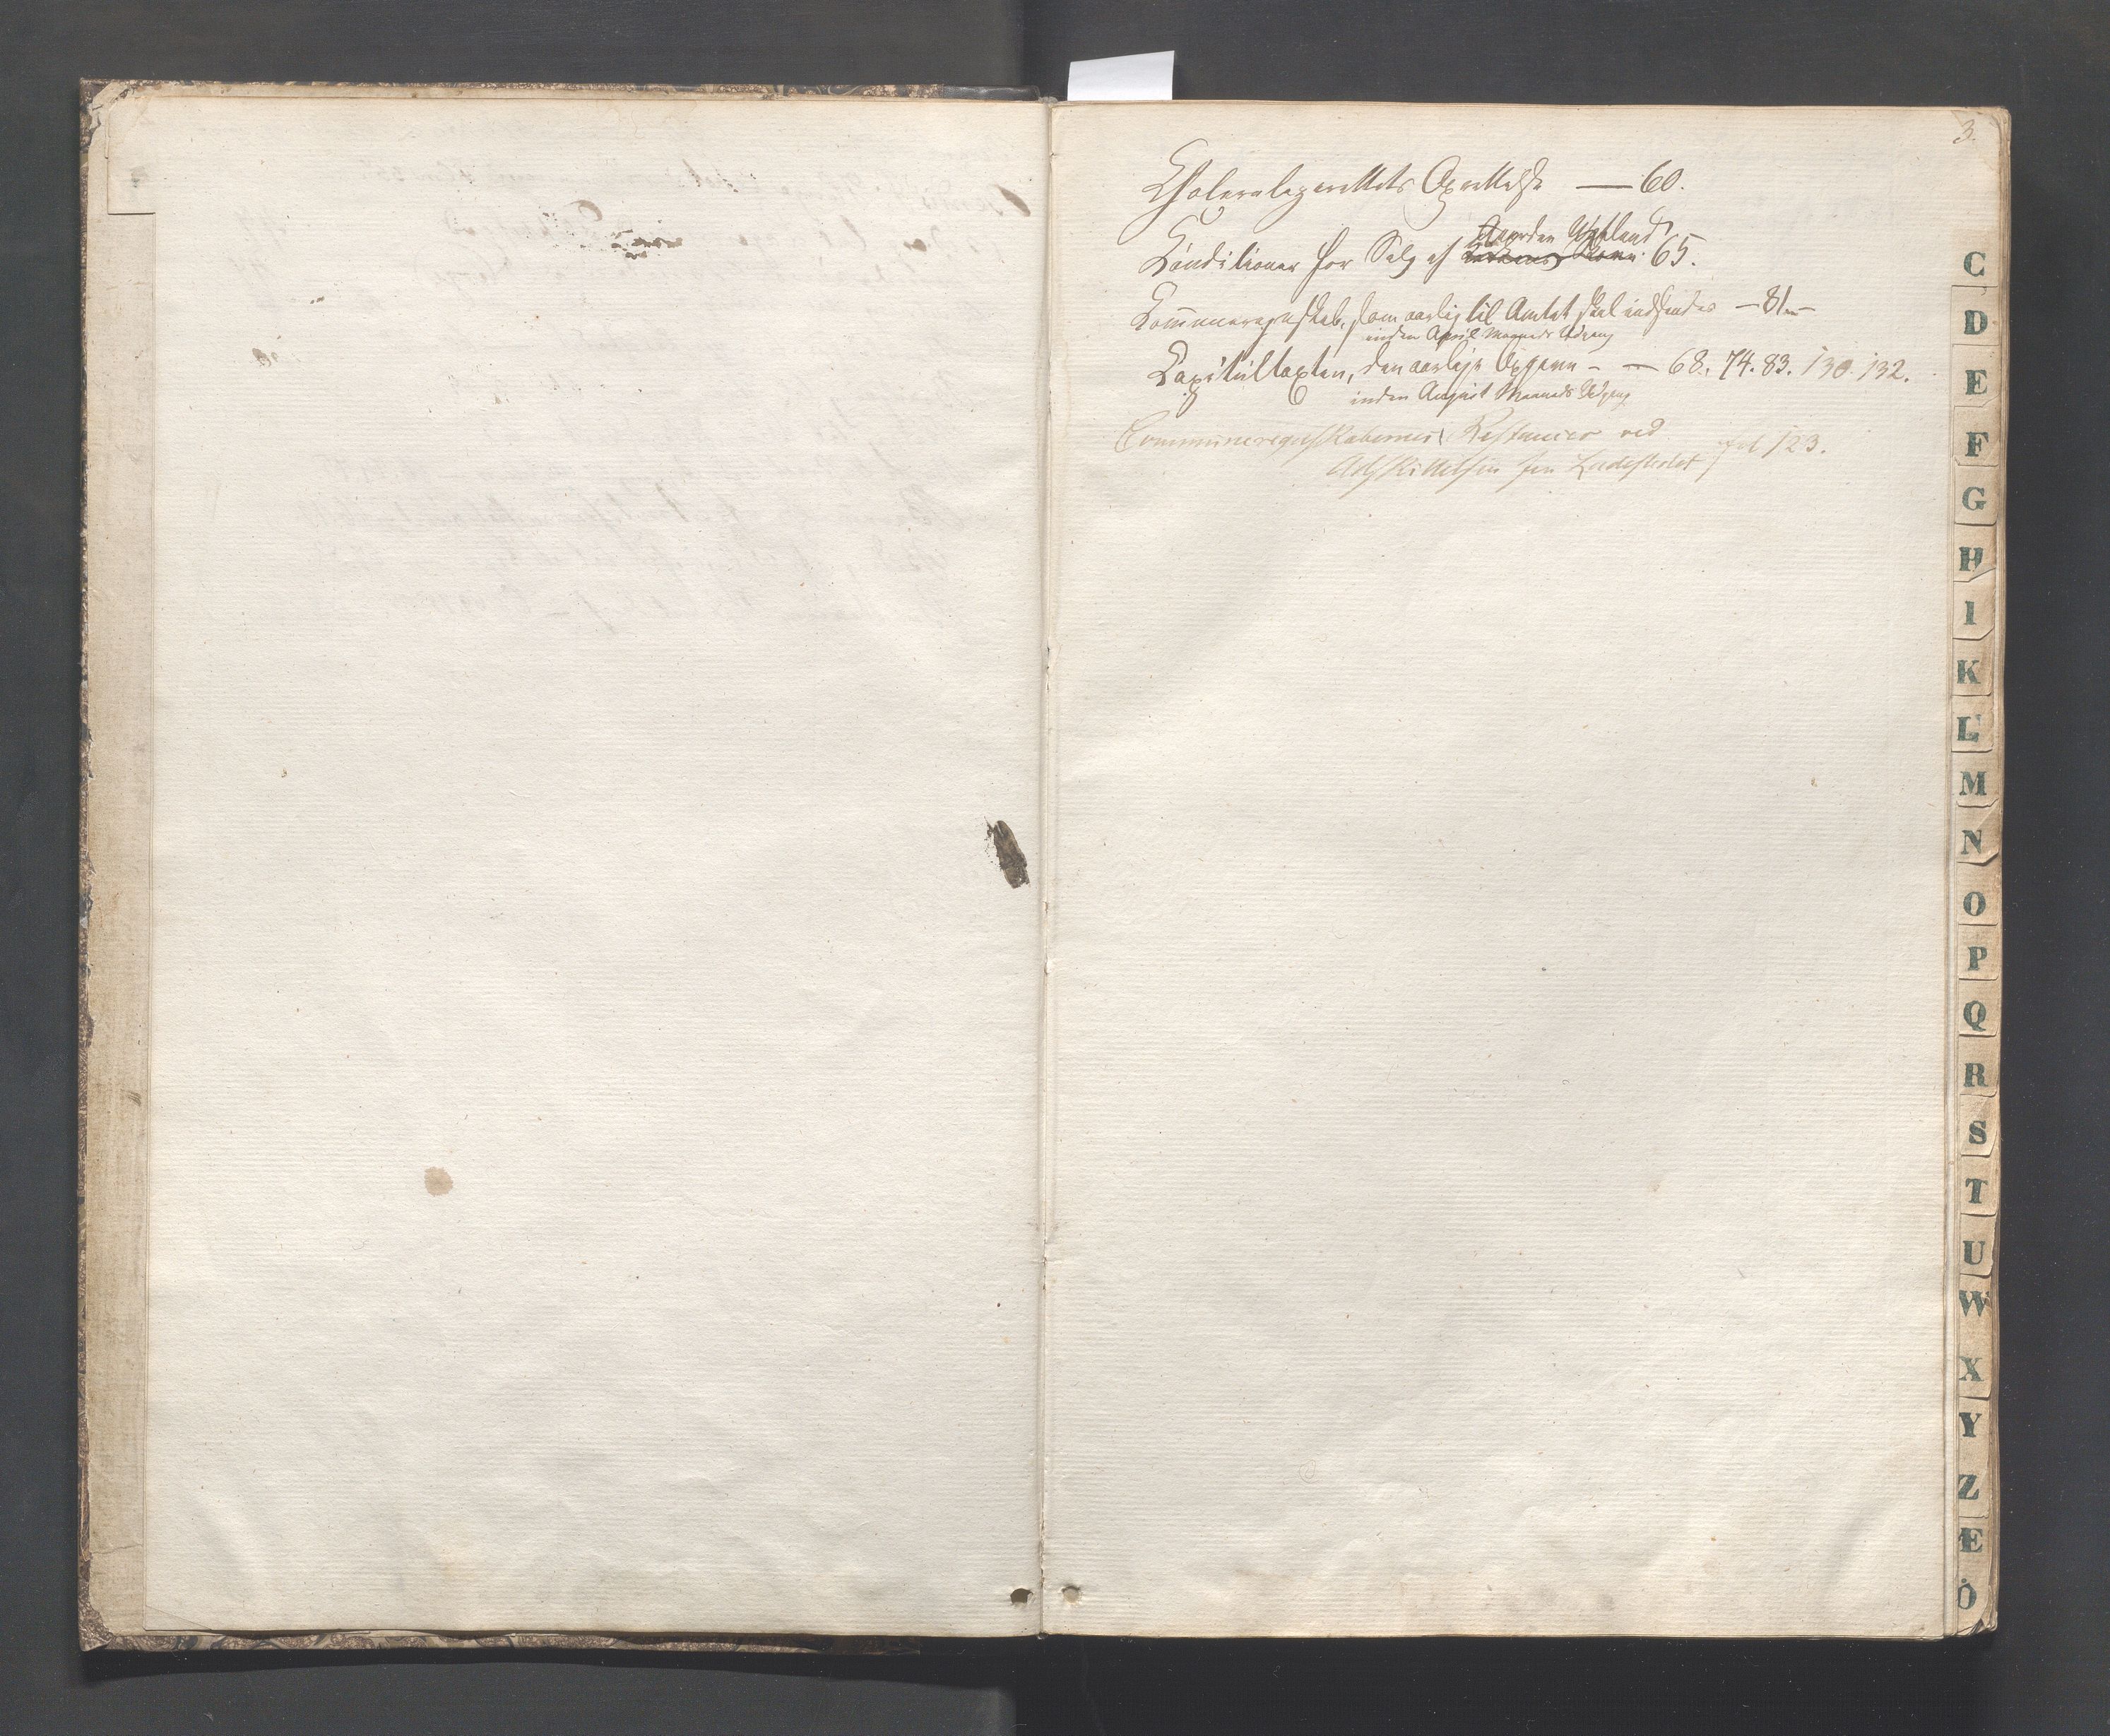 3.
Choleralazarettets Oprettelse — 60.
Gaarden Vestland
Conditioner for Salg af 65.
Communeregnskab, som aarlig til Amtet skal indsendes — 81 —
inden April Maaneds Udgang
Capitultaxten, den aarlige Opgave - — 68. 74. 83. 130. 132.
inden August Maaneds Udgang
Communeregnskabernes Restancer ved
for Ladestedet fol 123.
C
D
E
F
G
H
I
K
L
M
N
O
P
Q
R
S
T
U
W
X
Y
Z
Æ
Ö